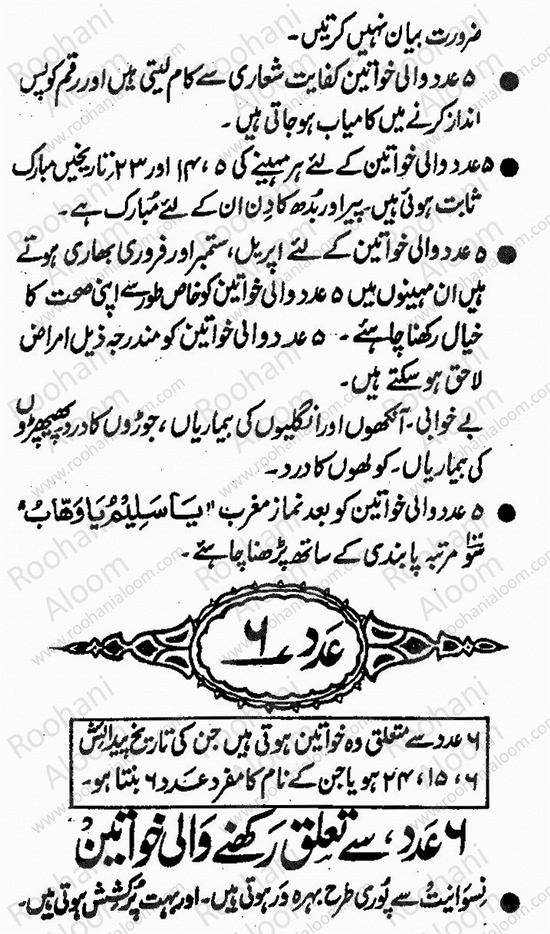 ضرورت بیان نہیں کرتیں۔
● ۵ عدد والی خواتین کفایت شعاری سے کام لیتی ہیں اور رقم کو پس
انداز کرنے میں کامیاب ہو جاتی ہیں۔
● ۵ عدد والی خواتین کے لئے ہر مہینے کی ۵، ۱۴ اور ۲۳ تاریخیں مبارک
ثابت ہوئی ہیں۔ پیر اور بدھ کا دن ان کے لئے مُبارک ہے۔
● ۵ عدد والی خواتین کے لئے اپریل، ستمبر اور فروری بھاری ہوتے
ہیں ان مہینوں میں ۵ عدد والی خواتین کو خاص طور سے اپنی صحت کا
خیال رکھنا چاہئے۔ ۵ عدد والی خواتین کو مندرجہ ذیل امراض
لاحق ہو سکتے ہیں۔
بے خوابی۔ آنکھوں اور انگلیوں کی بیماریاں، جوڑوں کا درد، پھیپھڑوں
کی بیماریاں۔ کولھوں کا درد۔
● ۵ عدد والی خواتین کو بعد نماز مغرب "یَا سَلِیْمُ یَا وَھَّابُ"
سو مرتبہ پابندی کے ساتھ پڑھنا چاہئے۔
عدد ۶
۶ عدد سے متعلق وہ خواتین ہوتی ہیں جن کی تاریخ پیدائش
۶، ۱۵، ۲۴ ہو یا جن کے نام کا مفرد عدد ۶ بنتا ہو۔
۶ عَدَد، سے تعلق رکھنے والی خواتین
● نسوانیت سے پُوری طرح بہرہ ور ہوتی ہیں۔ اور بہت پُرکشش ہوتی ہیں۔
Roohani
Aloom
www.roohanialoom.com